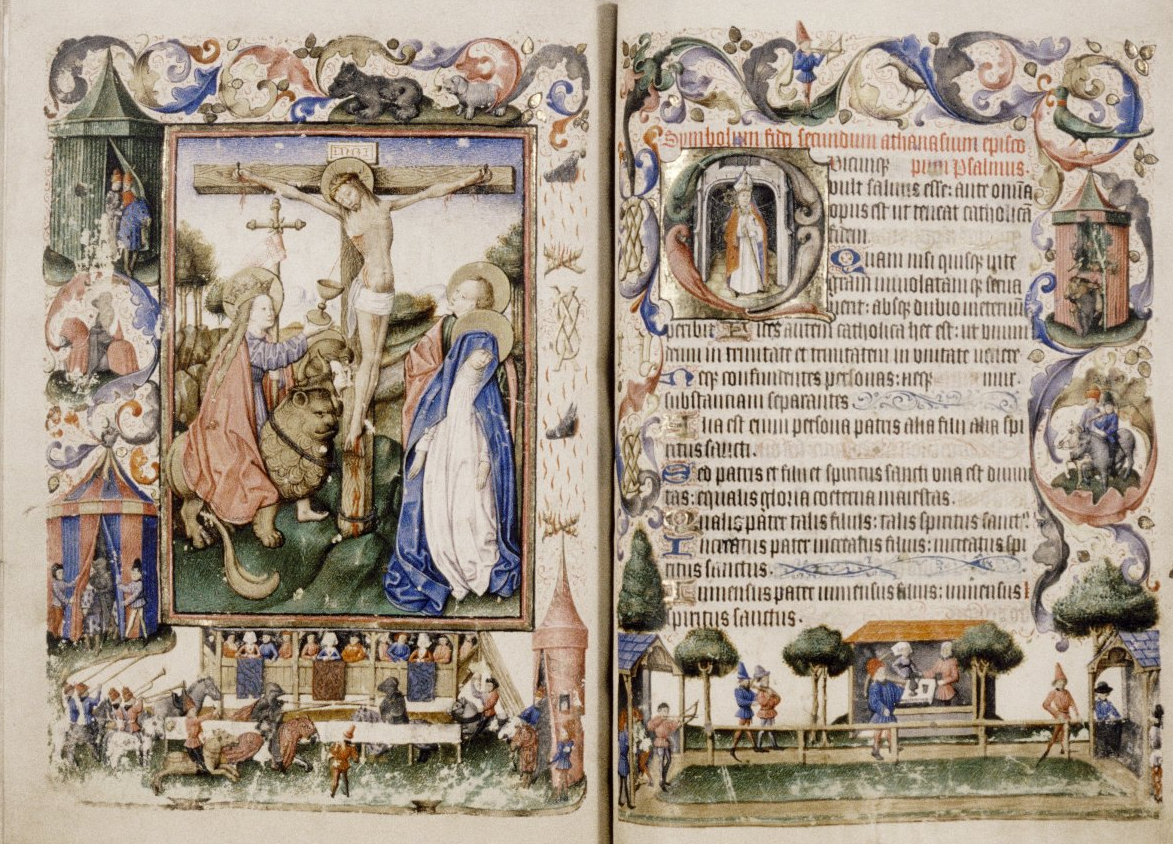 INRI
Simbolum fidei secundum athanasium episco
Quicumque pum Psalmus.
vult saluus esse: ante omnia
opus est ut teneat catholicā
fidem.
Quam nisi quisq̄ inte
gram inuiolatam q̄ serua
uerit: absq̄ dubio in eternū
peribit Fides autem catholica hec est: ut unum
deum in trinitate et trinitatem in unitate uenere
Neq̄ confundentes personas: neq̄ mur.
substanciam separantes.
Alia est enim persona patris alia filii alia spi
ritus sancti.
Sed patris et filii et spiritus sancti una est diuini
tas: equalis gloria coeterna maiestas.
Qualis pater talis filius: talis spiritus sanctꝰ
Increatus pater increatus filius: increatus spi
ritus sanctus.
Inmensus pater inmensus filius: inmensus
spiritus sanctus.